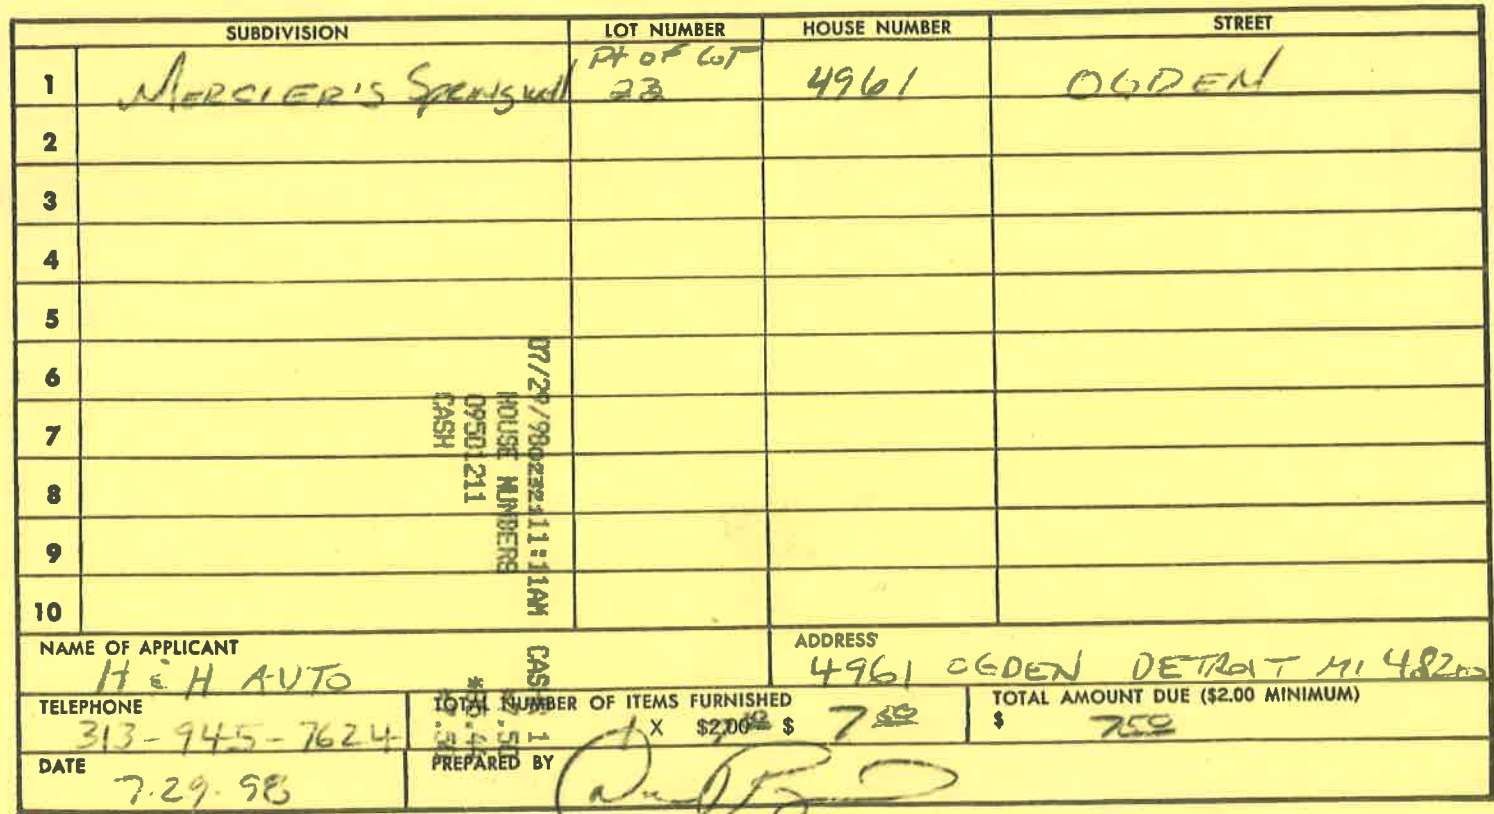 SUBDIVISION LOT NUMBER HOUSE NUMBER STREET
1 MERCIER'S Springwell Pt OF LOT 23 4961 OGDEN
2
3
4
5
6
7
8
9
10
07/29/98 11:11AM CASH 1
HOUSE NUMBERS
09501211
CASH
NAME OF APPLICANT
H & H AUTO
ADDRESS
4961 OGDEN DETROIT MI
TELEPHONE
313-945-7624
TOTAL NUMBER OF ITEMS FURNISHED
1 X $2.00 $ 7 50
TOTAL AMOUNT DUE ($2.00 MINIMUM)
$ 7 50
DATE
7.29.98
PREPARED BY